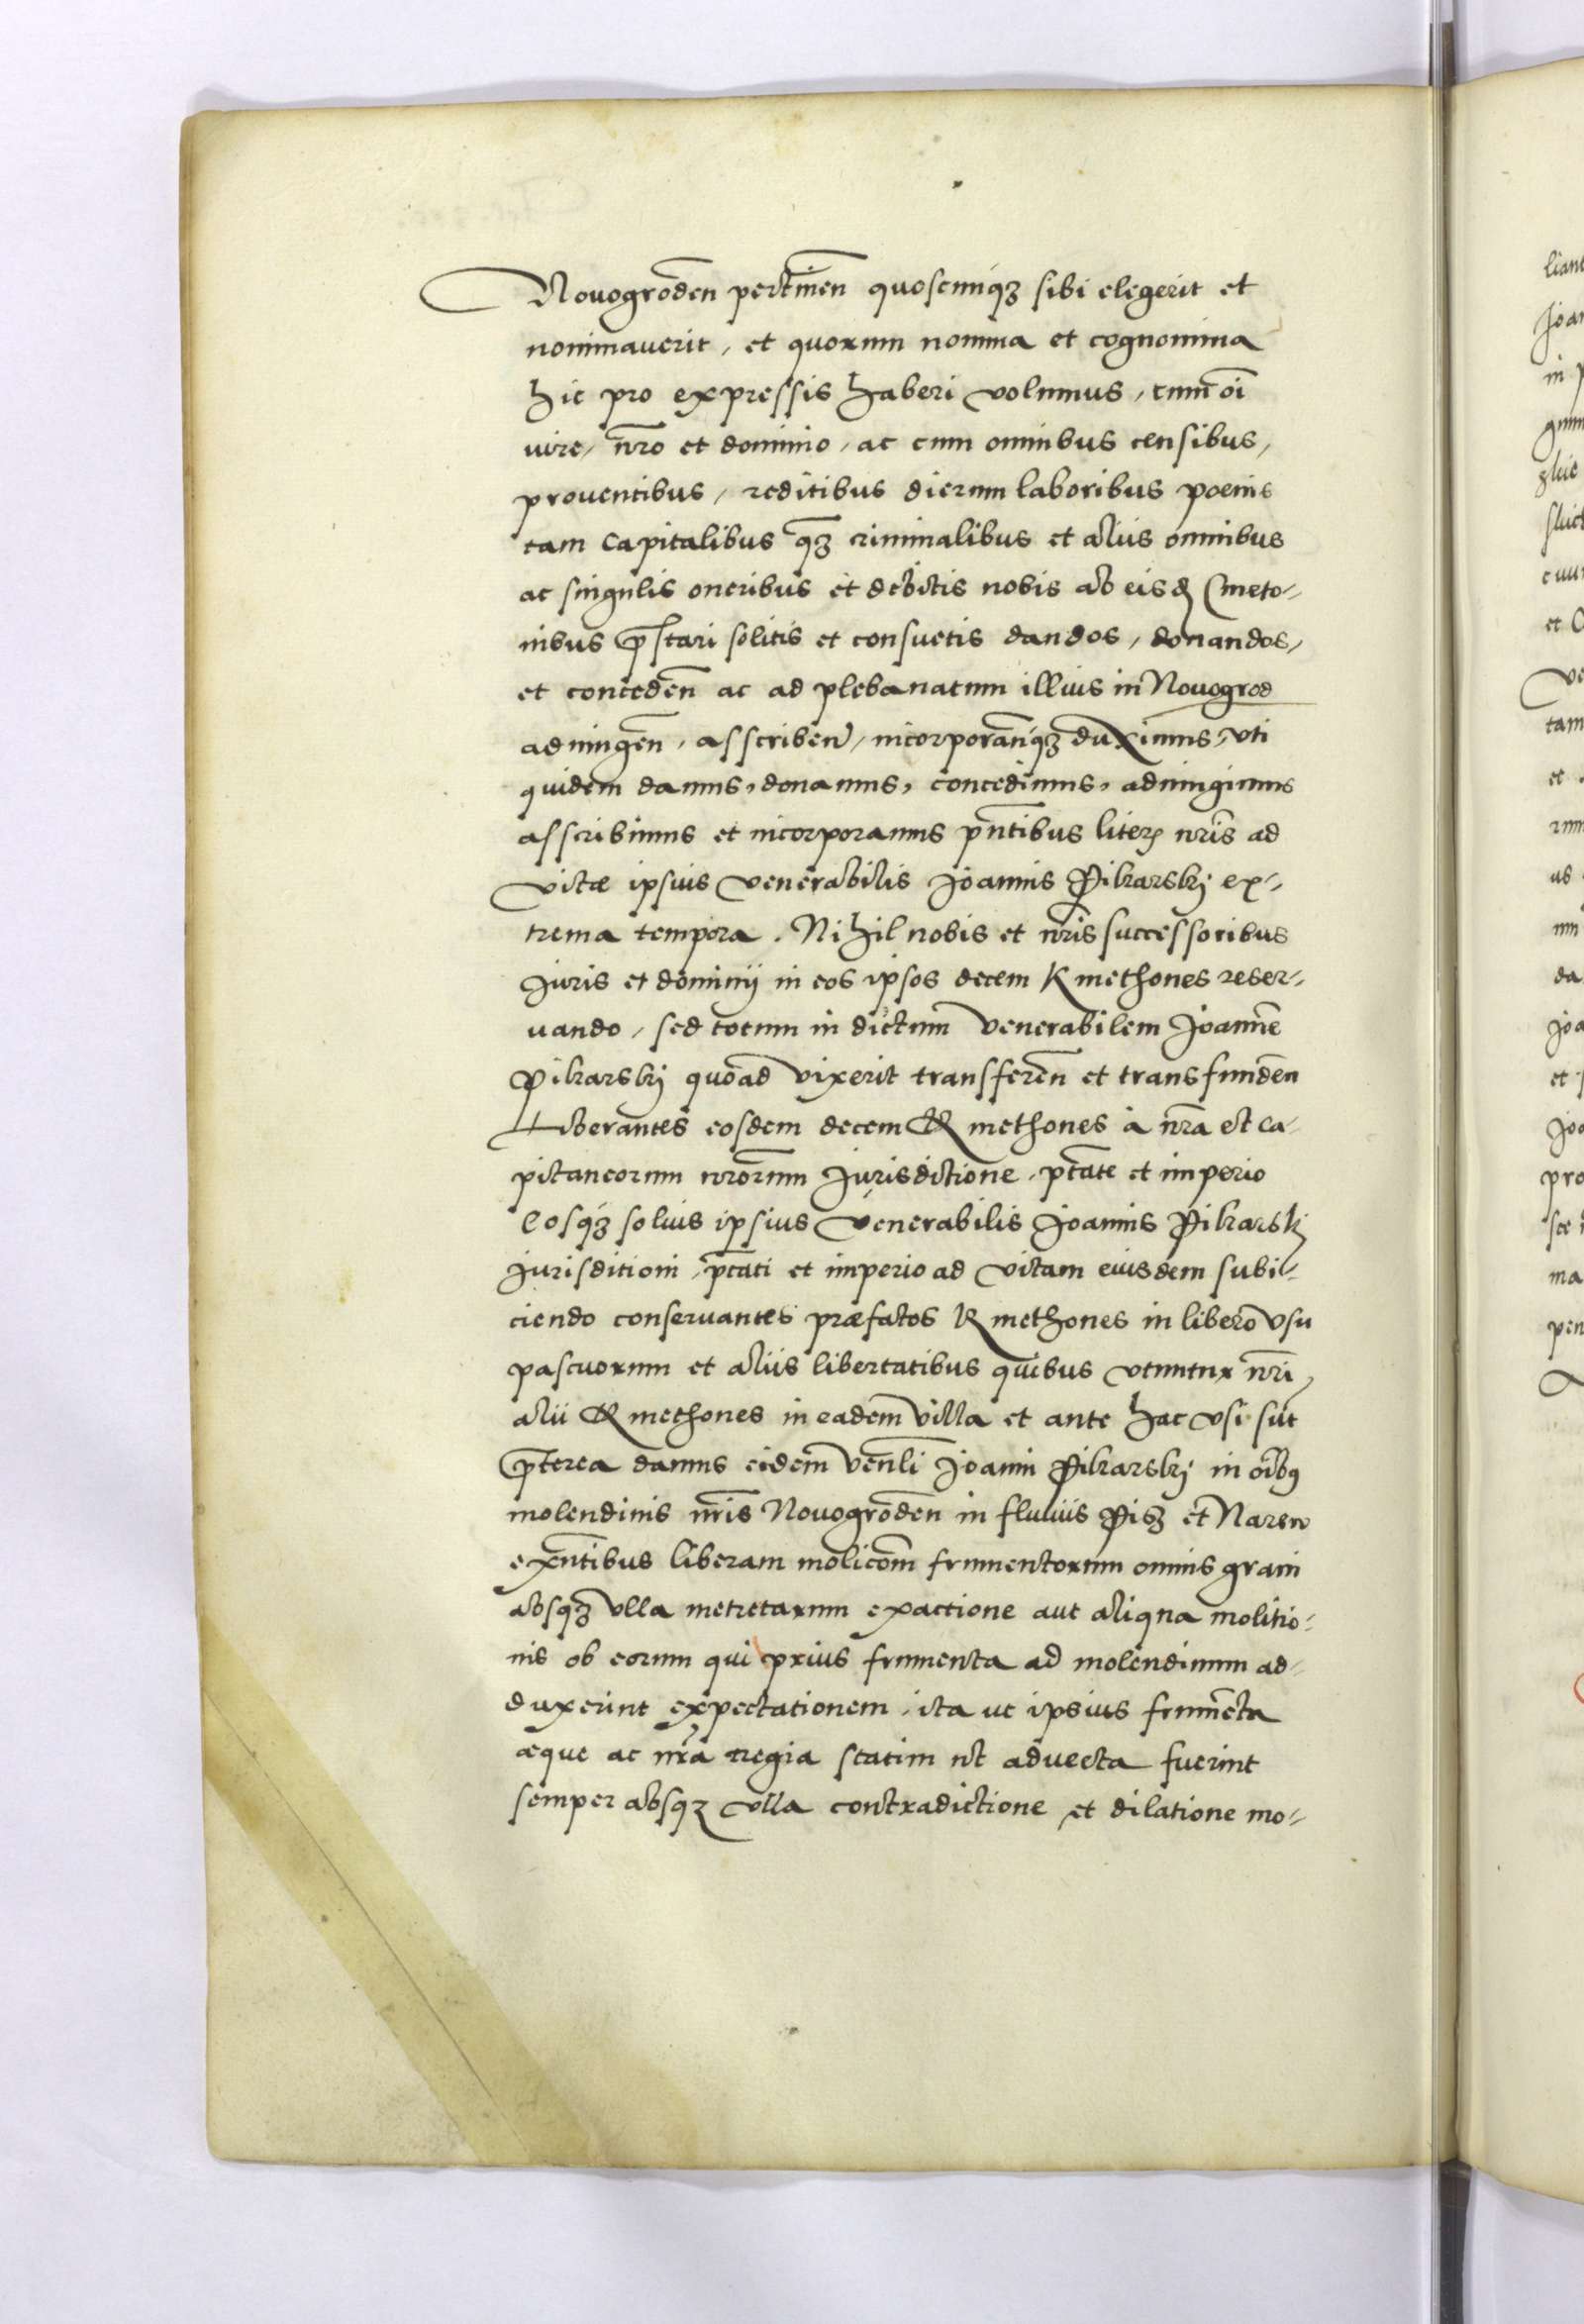 Nouogrođen pertinen̄ quoscunq꜄ sibi elegerit et
nominauerit, et quorum nomina et cognomina
hic pro expressis haberi volumus, cum oı̄
iure, nr̄o et dominio, ac cum omnibus censibus,
prouentibus, reditibus dierum laboribus poenis
tam capitalibus q̄ꝫ criminalibus et alijs omnibus
ac singulis oneribus et debitis nobis ab eisđ Cmeto-
nibus p̄stari solitis et consuetis dandos, donandos,
et conceden̄ ac ad plebanatum illius in Nouogrod
adiungen̄, asscriben̄, incorporan̄q꜄ duximus, vti
quidem damus, donamus, concedimus, adiungimus
asscribimus et incorporamus pn̄tibus literꝭ nr̄is ad
vitae ipsius venerabilis Joannis Pikarskj ex-
trema tempora. Nihil nobis et nr̄is successoribus
Juris et dominij in eos ipsos decem Kmethones reser-
uando, sed totum in dictum venerabilem Joannē
Pikarskj quoad vixerit transferen̄ et transfunden̄
Liberantes eosdem decem Kmethones à nr̄a et ca-
pitaneorum nr̄orum Jurisdictione, ptāte et imperio
Eosq꜄ solius ipsius venerabilis Joannis Pikarskj
Jurisditioni, ptāti et imperio ad vitam eiusdem subij-
ciendo conseruantes praefatos Kmethones in libero vsu
pascuorum et alijs libertatibus quibus vtuntur nr̄i
alij Kmethones in eadem villa et ante hac vsi sūt
p̄terea damus eidem venl̄i Joanni Pikarskj in oı̄bꝰ
molendinis nr̄is Nouogroden̄ in fluuijs Pisz et Narew
exn̄tibus liberam molicōm frumentorum omnis grani
absq꜄ vlla metretarum exactione aut aliqua molitio-
nis ob eorum qui prius frumenta ad molendinum ad-
duxerint expectationem, ita ut ipsius frumēta
aeque ac nr̄a regia statim ut aduecta fuerint
semper absq꜄ vlla contradictione et dilatione mo-